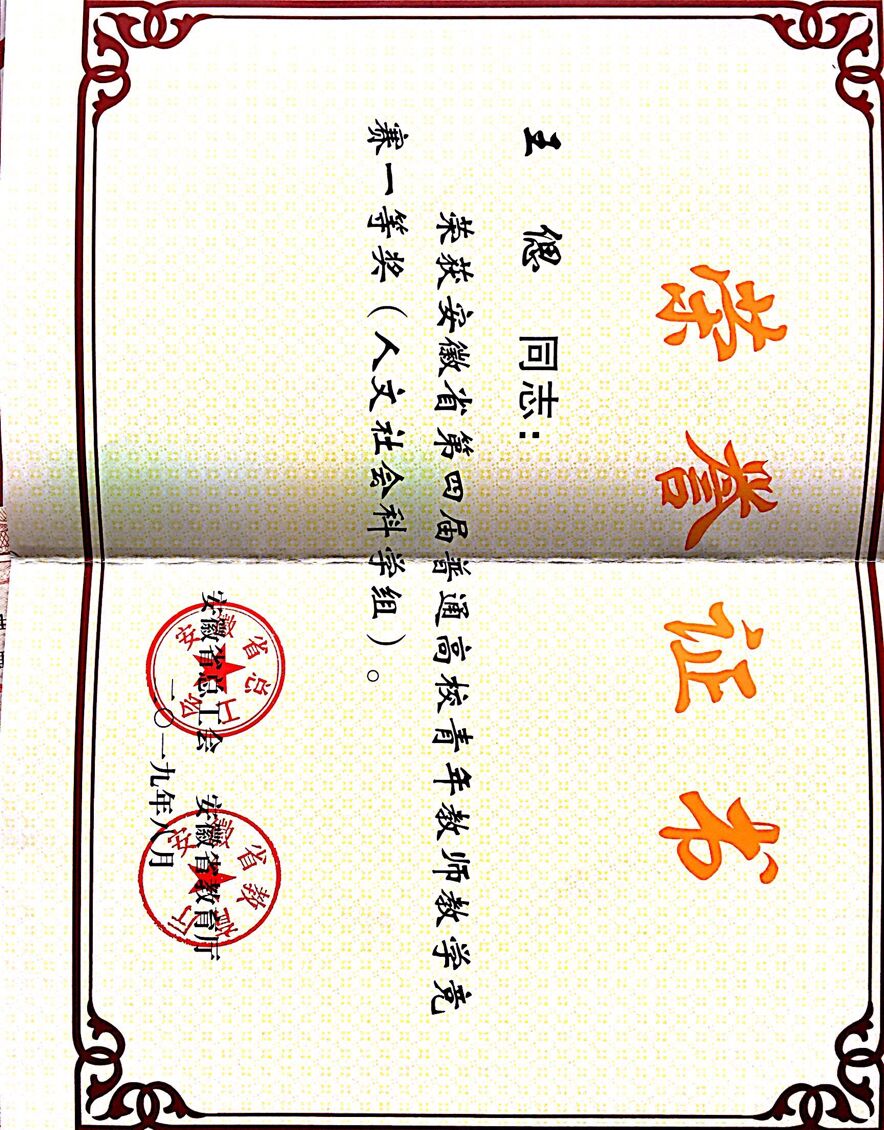 荣誉证书
王偲 同志：
荣获安徽省第四届普通高校青年教师教学竞
赛一等奖（人文社会科学组）。
安徽省总工会 安徽省教育厅
二〇一九年八月
安徽省总工会
安徽省教育厅